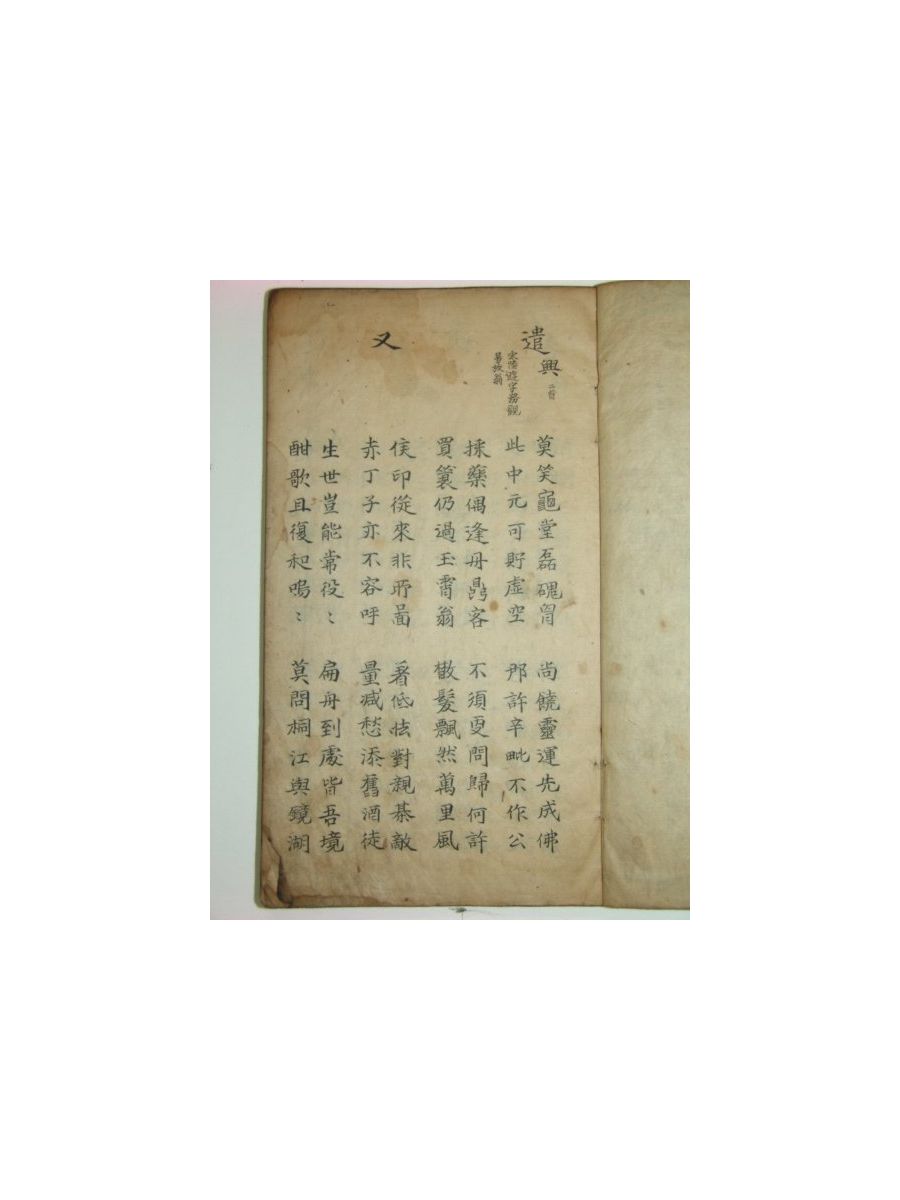 遣興 二首
宋陸遊字務觀
号放翁
莫笑龜堂磊磈胷
此中元可貯虛空
尚饒靈運先成佛
那許辛毗不作公
採藥偶逢丹鼎客
買簑仍過玉霄翁
不須更問歸何許
散髮飄然萬里風
又
侯印從來非所啚
赤丁子亦不容呼
著低怯對親碁敵
量减愁添舊酒徒
生世豈能常役〻
酣歌且復和嗚〻
扁舟到處皆吾境
莫問桐江與鏡湖